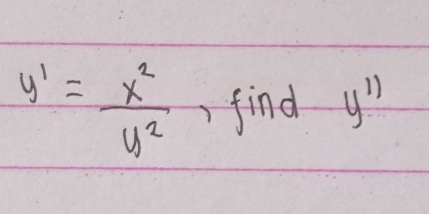 y' = x²/y², find y''